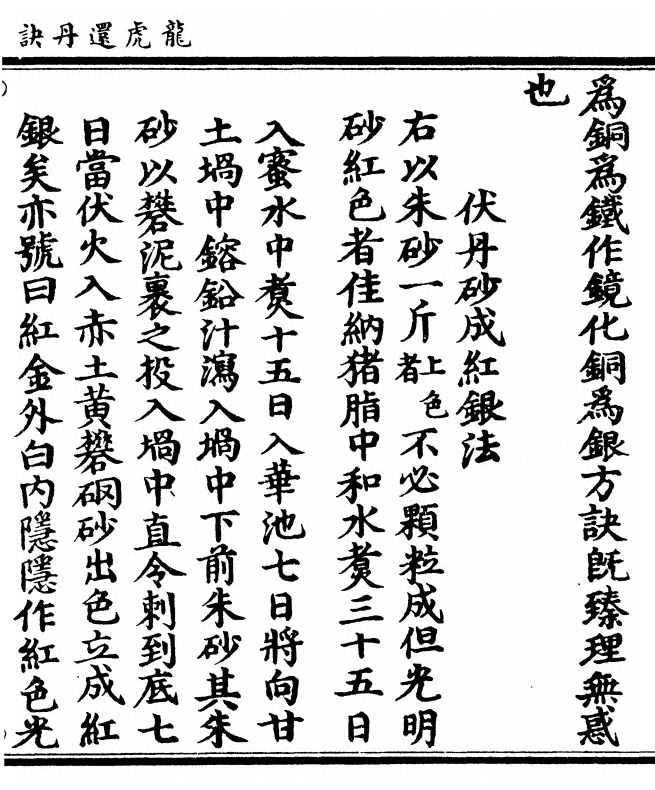 龍虎還丹訣
為銅為鐵作鏡化銅為銀方訣既臻理無惑
也
伏丹砂成紅銀法
右以朱砂一斤上色者不必顆粒成但光明
砂紅色者佳納猪脂中和水煑三十五日
入蜜水中煑十五日入華池七日將向甘
土堝中鎔鉛汁瀉入堝中下前朱砂其朱
砂以礬泥裹之投入堝中直令刺到底七
日當伏火入赤土黄礬硇砂出色立成紅
銀矣亦號曰紅金外白内隱隱作紅色光